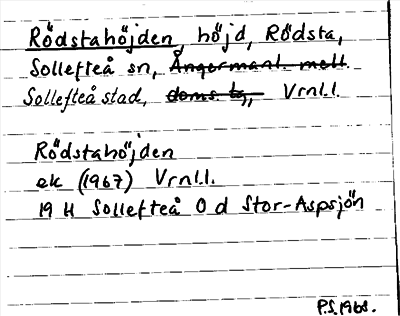 Rödstahöjden, höjd, Rödsta,
Sollefteå sn, Ångermanl. mell.
Sollefteå stad, doms. tg, Vrnl.l.
Rödstahöjden
ek (1967) Vrnl.l.
19 H Sollefteå O d Stor-Aspsjön
P.S. 1968.